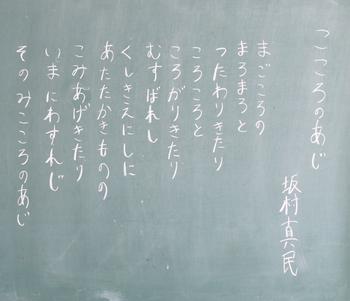 こころのあじ
坂村真民
まごころの
まろまろと
つたわりきたり
ころころと
ころがりきたり
むすばれし
くしきえにしに
あたたかきものの
こみあげきたり
いまにわすれじ
そのみこころのあじ